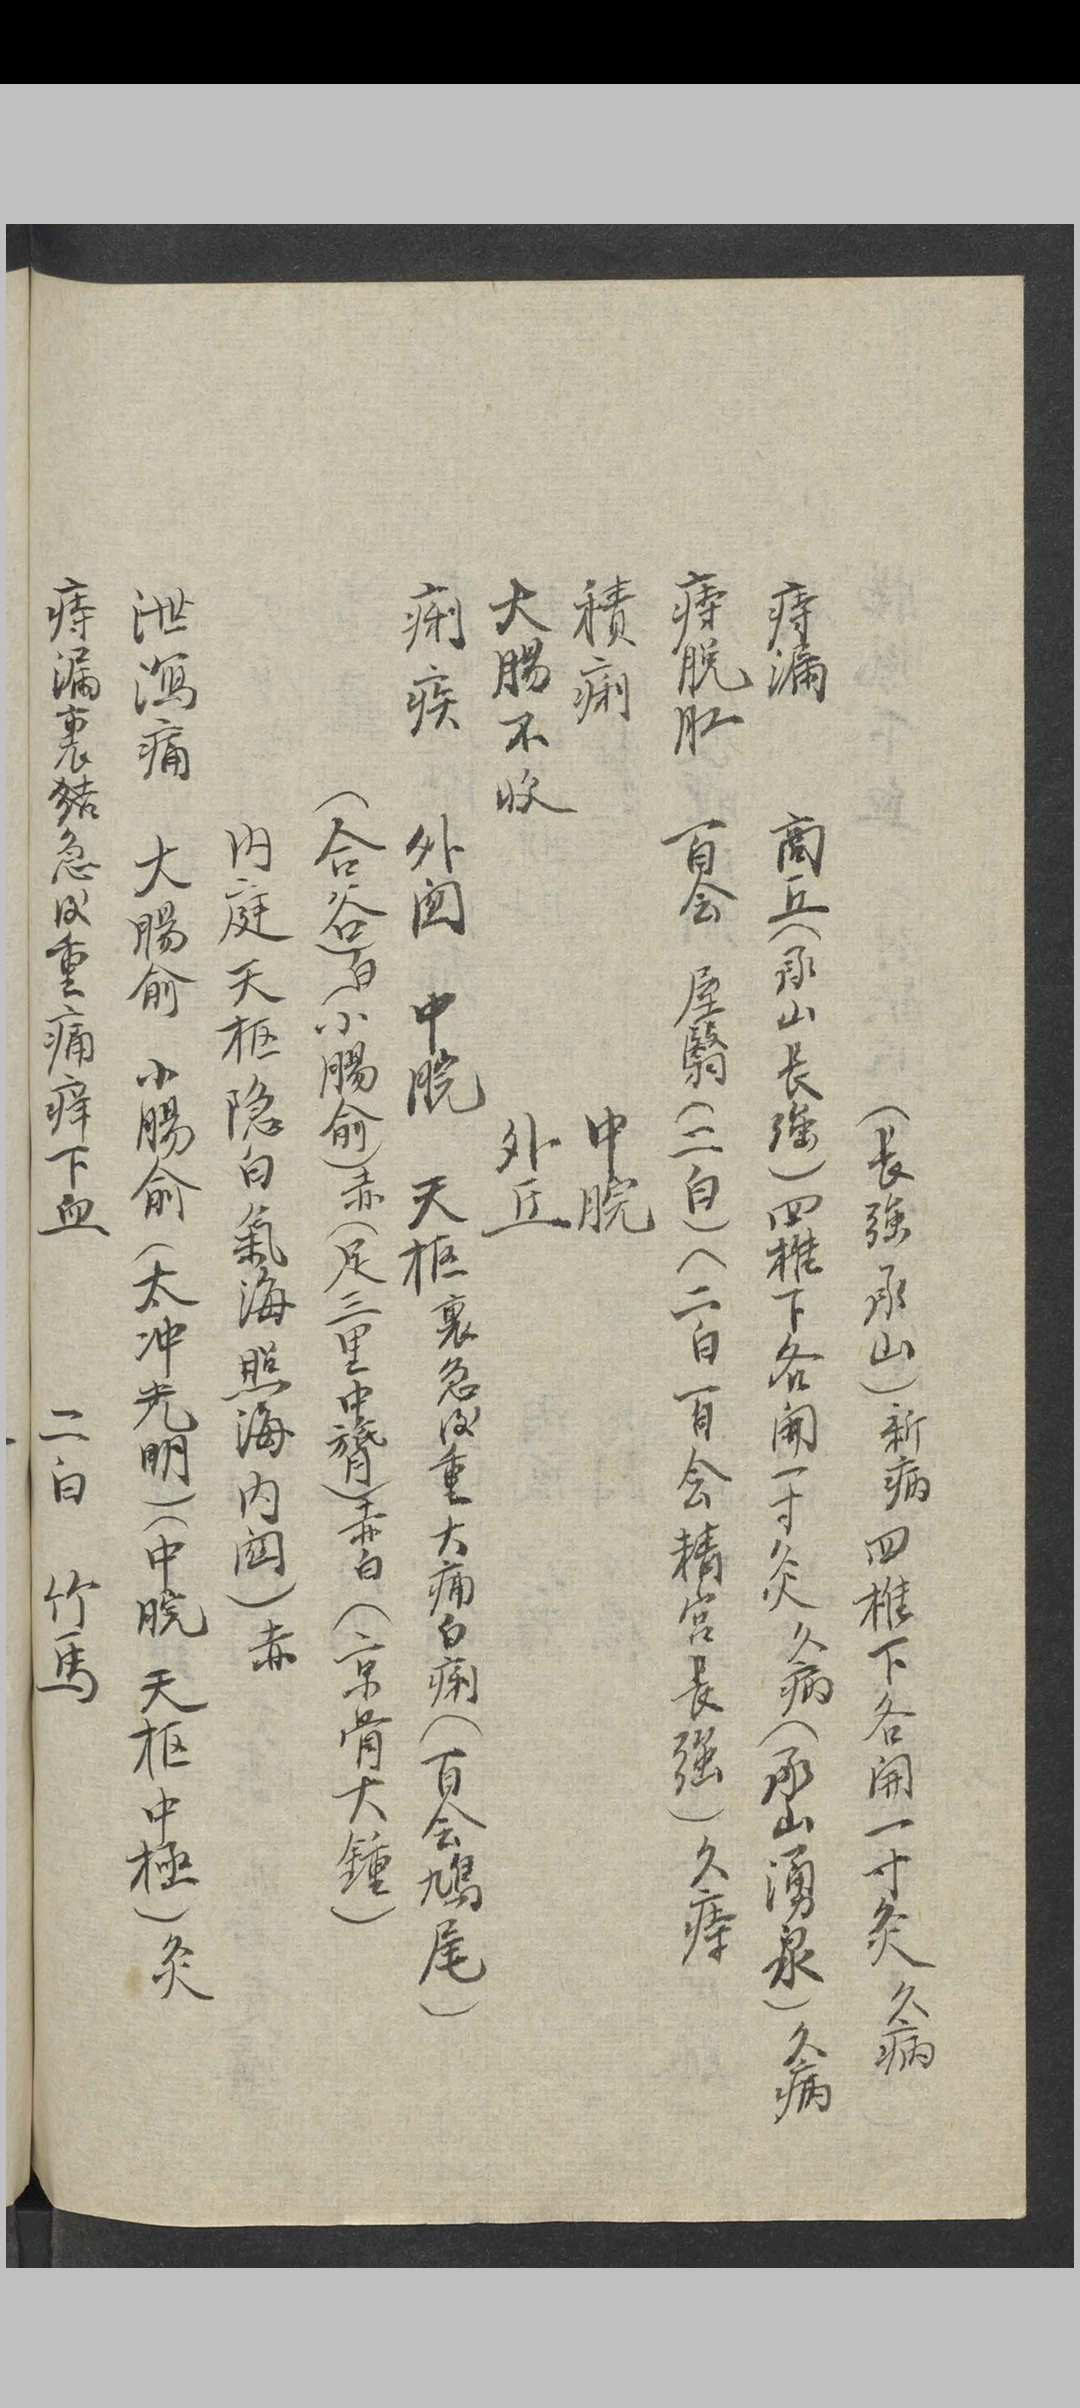 (長強承山)新病四椎下各開一寸灸久病
痔漏 商丘(承山長強)四椎下各開一寸灸久病(承山湧泉)久病
痔脱肛 百会 屋翳(二白)(二白百会精宮長強)久痔
積痢 中脘
大腸不收 外丘
痢疾 外関 中脘 天枢裏急後重大痛白痢(百会鳩尾)
(合谷)白(小腸俞)赤(足三里中膂)赤白(京骨大鍾)
内庭天枢隐白氣海照海内関)赤
泄瀉痛 大腸俞 小腸俞(太冲光明)(中脘天枢中極)灸
痔漏裏結急後重痛痒下血 二白 竹馬